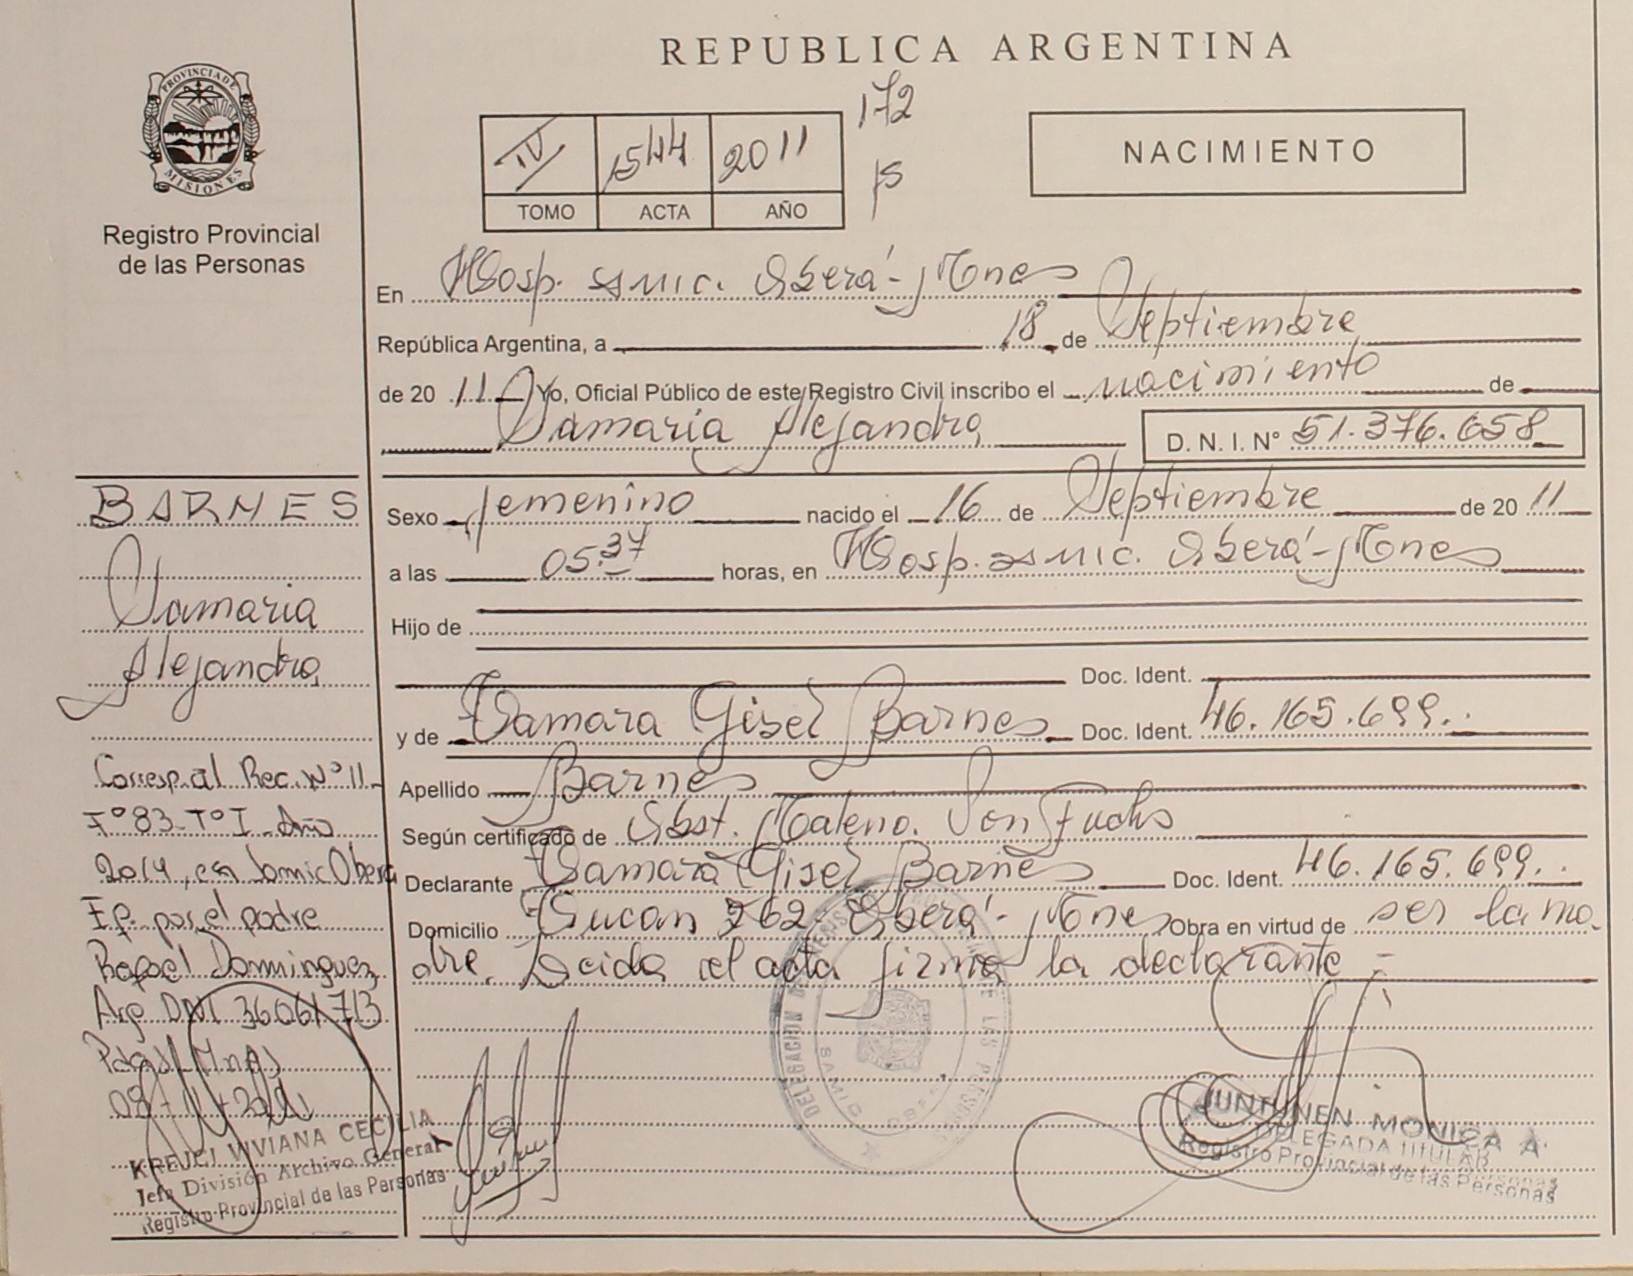 REPUBLICA ARGENTINA
PROVINCIA DE MISIONES
Registro Provincial
de las Personas
IV 1544 2011
TOMO ACTA AÑO
172
NACIMIENTO
En Hosp. Samic. Oberá - Mnes
República Argentina, a 18 de Septiembre
de 20 11 Yo, Oficial Público de este Registro Civil inscribo el nacimiento de
Damaria Alejandra D. N. I. N° 51.376.658
Sexo femenino nacido el 16 de Septiembre de 20 11
a las 05.37 horas, en Hosp. Samic. Oberá - Mnes
Hijo de
Doc. Ident.
y de Tamara Gisel Barnes Doc. Ident. 46.165.699.
Apellido Barnes
Según certificado de Obst. Von Fuchs
Declarante Tamara Gisel Barnes Doc. Ident. 46.165.699.
Domicilio 262 - Oberá - Mnes Obra en virtud de ser la ma
dre. Leida el acta firma la declarante -
BARNES
Damaria
Alejandra
Corresp. al Rec. N° 11 -
F° 83 - T° I - Año
2014, en Samic Oberá
por el padre
Rafael Dominguez
Arg DNI
KREJCI VIVIANA CECILIA
Jefa División Archivo General
Registro Provincial de las Personas
DELEGACION
SAMIC OBERA
JUNTUNEN MONICA A.
DELEGADA TITULAR
Registro Provincial de las Personas